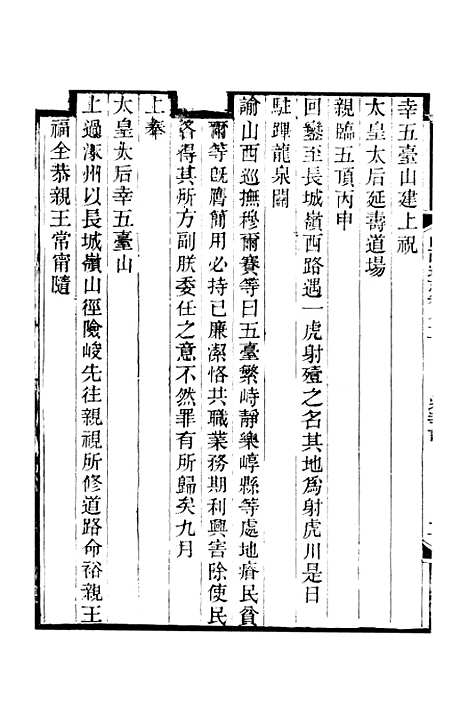 幸五臺山建上祝
太皇太后延壽道場
親臨五頂丙申
回鑾至長城嶺西路遇一虎射殪之名其地爲射虎川是日
駐蹕龍泉關
諭山西巡撫穆爾賽等曰五臺繁峙靜樂崞縣等處地瘠民貧
爾等旣膺簡用必持己廉潔恪共職業務期利興害除使民
各得其所方副朕委任之意不然罪有所歸矣九月
上奉
太皇太后幸五臺山
上過涿州以長城嶺山徑險峻先往親視所修道路命裕親王
福全恭親王常甯隨